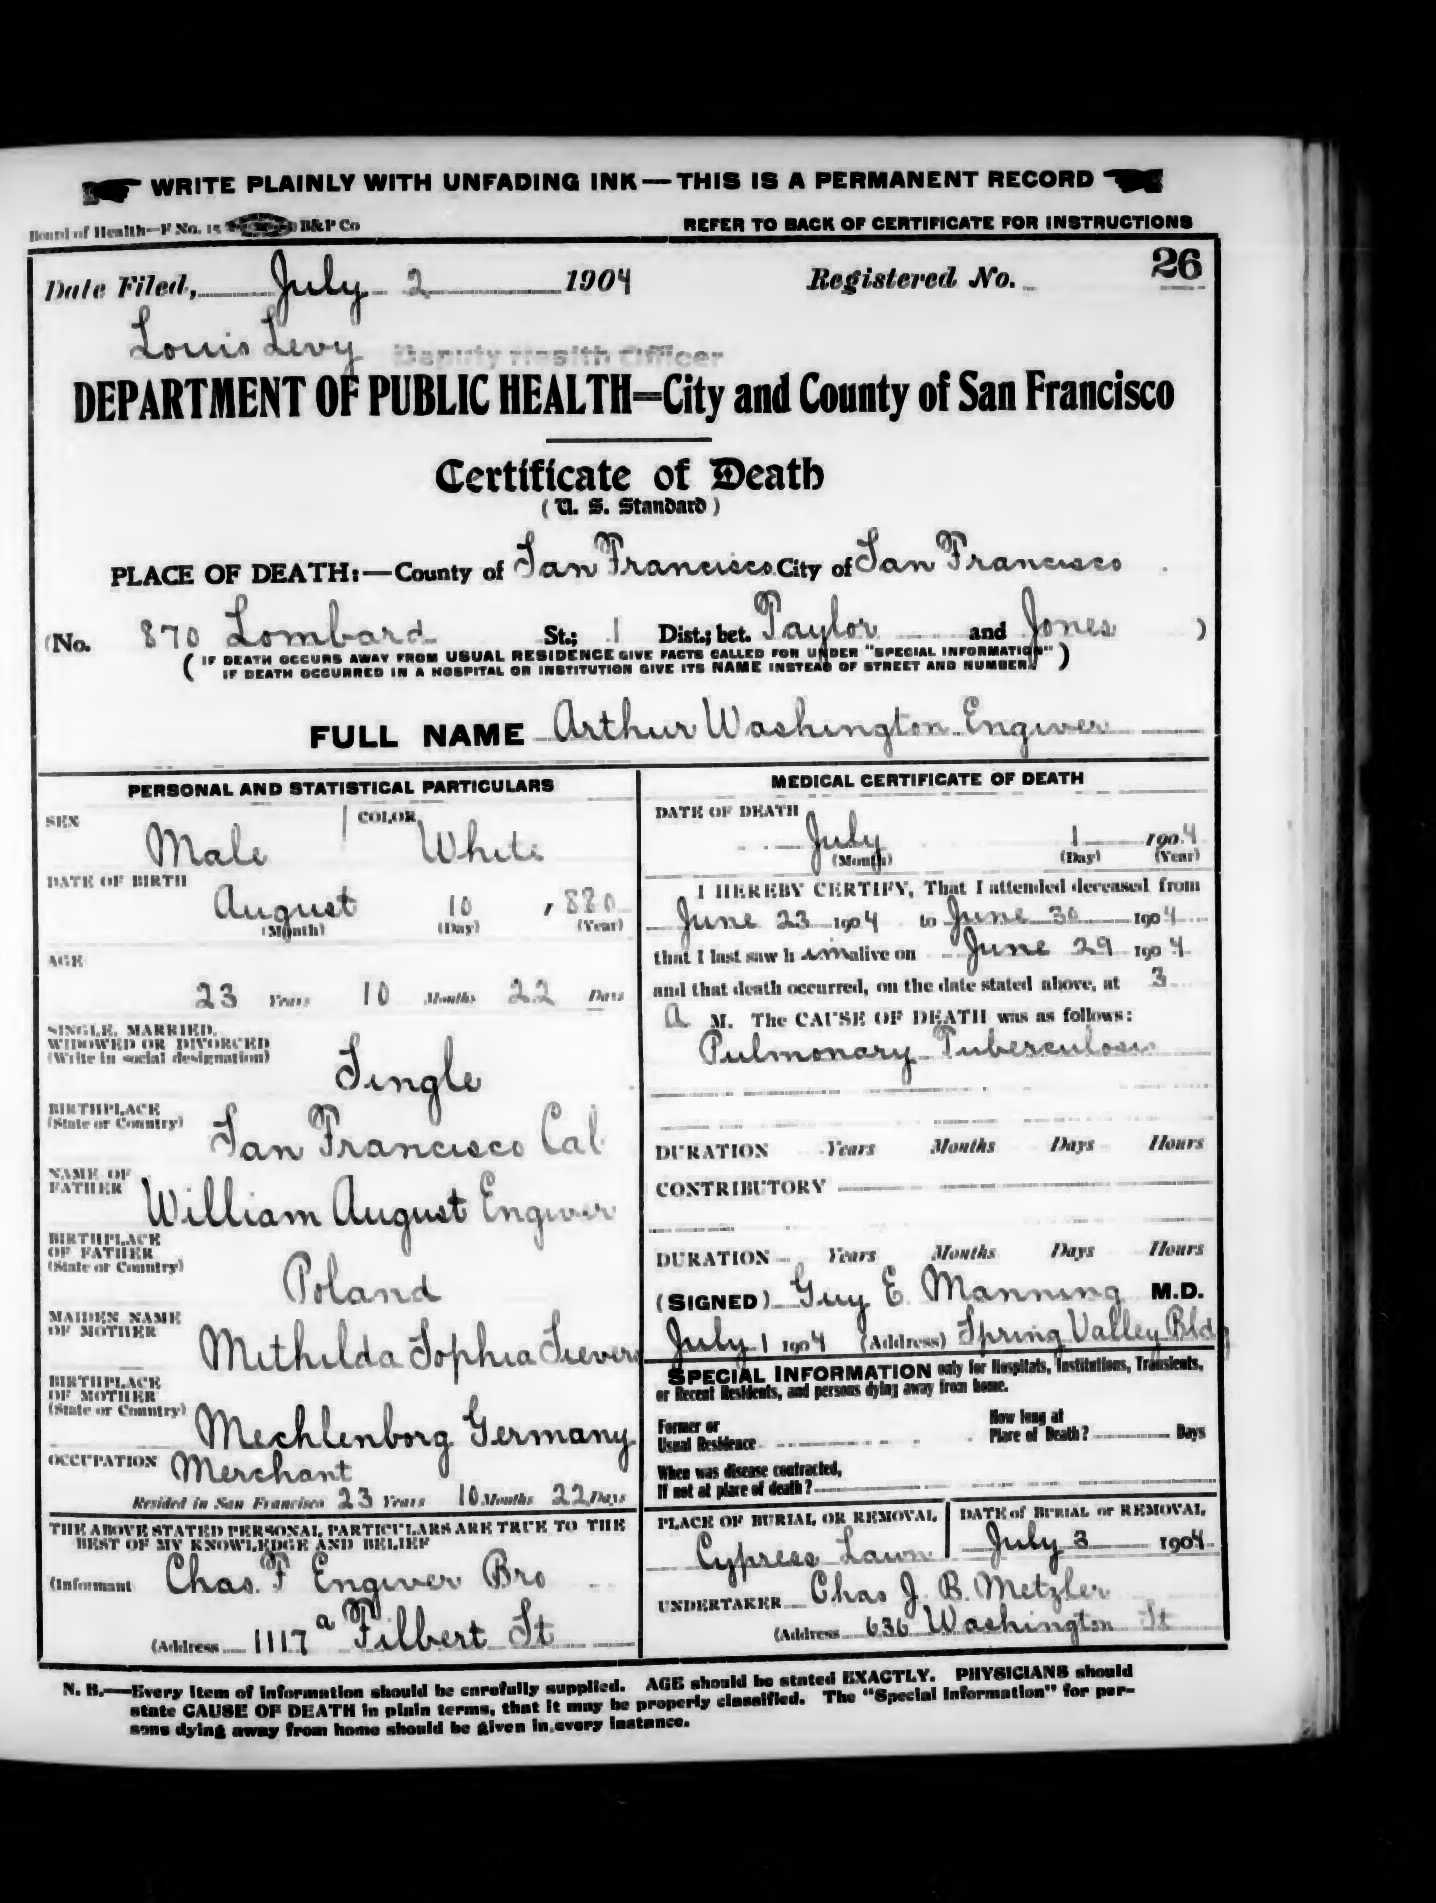 WRITE PLAINLY WITH UNFADING INK—THIS IS A PERMANENT RECORD
Board of Health—F No. 15 B&P Co REFER TO BACK OF CERTIFICATE FOR INSTRUCTIONS
Date Filed, July 2 1904 Registered No. 26
Louis Levy Deputy Health Officer
DEPARTMENT OF PUBLIC HEALTH=City and County of San Francisco
Certificate of Death
(U. S. Standard)
PLACE OF DEATH:—County of San Francisco City of San Francisco
(No. 870 Lombard St.; 1 Dist.; bet. Taylor and Jones )
( IF DEATH OCCURS AWAY FROM USUAL RESIDENCE GIVE FACTS CALLED FOR UNDER "SPECIAL INFORMATION" )
IF DEATH OCCURRED IN A HOSPITAL OR INSTITUTION GIVE ITS NAME INSTEAD OF STREET AND NUMBER.
FULL NAME Arthur Washington Engwer
PERSONAL AND STATISTICAL PARTICULARS
SEX Male COLOR White
DATE OF BIRTH
August 10 , 880
(Month) (Day) (Year)
AGE
23 Years 10 Months 22 Days
SINGLE, MARRIED,
WIDOWED OR DIVORCED
(Write in social designation) Single
BIRTHPLACE
(State or Country) San Francisco Cal
NAME OF
FATHER William August Engwer
BIRTHPLACE
OF FATHER
(State or Country) Poland
MAIDEN NAME
OF MOTHER Mithilda Sophia Sievers
BIRTHPLACE
OF MOTHER
(State or Country) Mechlenborg Germany
OCCUPATION Merchant
Resided in San Francisco 23 Years 10 Months 22 Days
THE ABOVE STATED PERSONAL PARTICULARS ARE TRUE TO THE
BEST OF MY KNOWLEDGE AND BELIEF
(Informant Chas. F Engwer Bro
(Address 1117 a Filbert St
MEDICAL CERTIFICATE OF DEATH
DATE OF DEATH
July 1 1904
(Month) (Day) (Year)
I HEREBY CERTIFY, That I attended deceased from
June 23 1904 to June 30 1904
that I last saw h im alive on June 29 1904
and that death occurred, on the date stated above, at 3
A M. The CAUSE OF DEATH was as follows:
Pulmonary Tuberculosis
DURATION Years Months Days Hours
CONTRIBUTORY
DURATION Years Months Days Hours
(SIGNED) Guy E. Manning M.D.
July 1 1904 (Address) Spring Valley Bldg
SPECIAL INFORMATION only for Hospitals, Institutions, Transients,
or Recent Residents, and persons dying away from home.
Former or
Usual Residence
How long at
Place of Death? Days
When was disease contracted,
If not at place of death?
PLACE OF BURIAL OR REMOVAL
Cypress Lawn
DATE of BURIAL or REMOVAL
July 3 1904
UNDERTAKER Chas J. B. Metzler
(Address 636 Washington St
N. B.—Every item of information should be carefully supplied. AGE should be stated EXACTLY. PHYSICIANS should
state CAUSE OF DEATH in plain terms, that it may be properly classified. The "Special Information" for per-
sons dying away from home should be given in every instance.